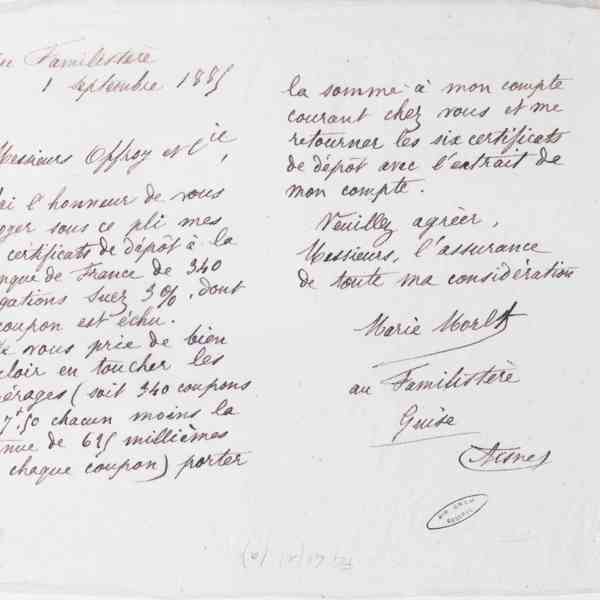 Familistère
1 septembre 1885
Messieurs Offroy et Cie,
ai l'honneur de vous
sous ce pli mes
certificats de dépôt à la
de France de 340
Suez 3%, dont
coupon est échu.
vous prie de bien
en toucher les
(soit 340 coupons
7f.50 chacun moins la
de 625 millièmes
chaque coupon) porter
la somme à mon compte
courant chez vous et me
retourner les six certificats
de dépôt avec l'extrait de
mon compte.
Veuillez agréer,
Messieurs, l'assurance
de toute ma considération
Marie Moret
au Familistère
Guise
(Aisne)